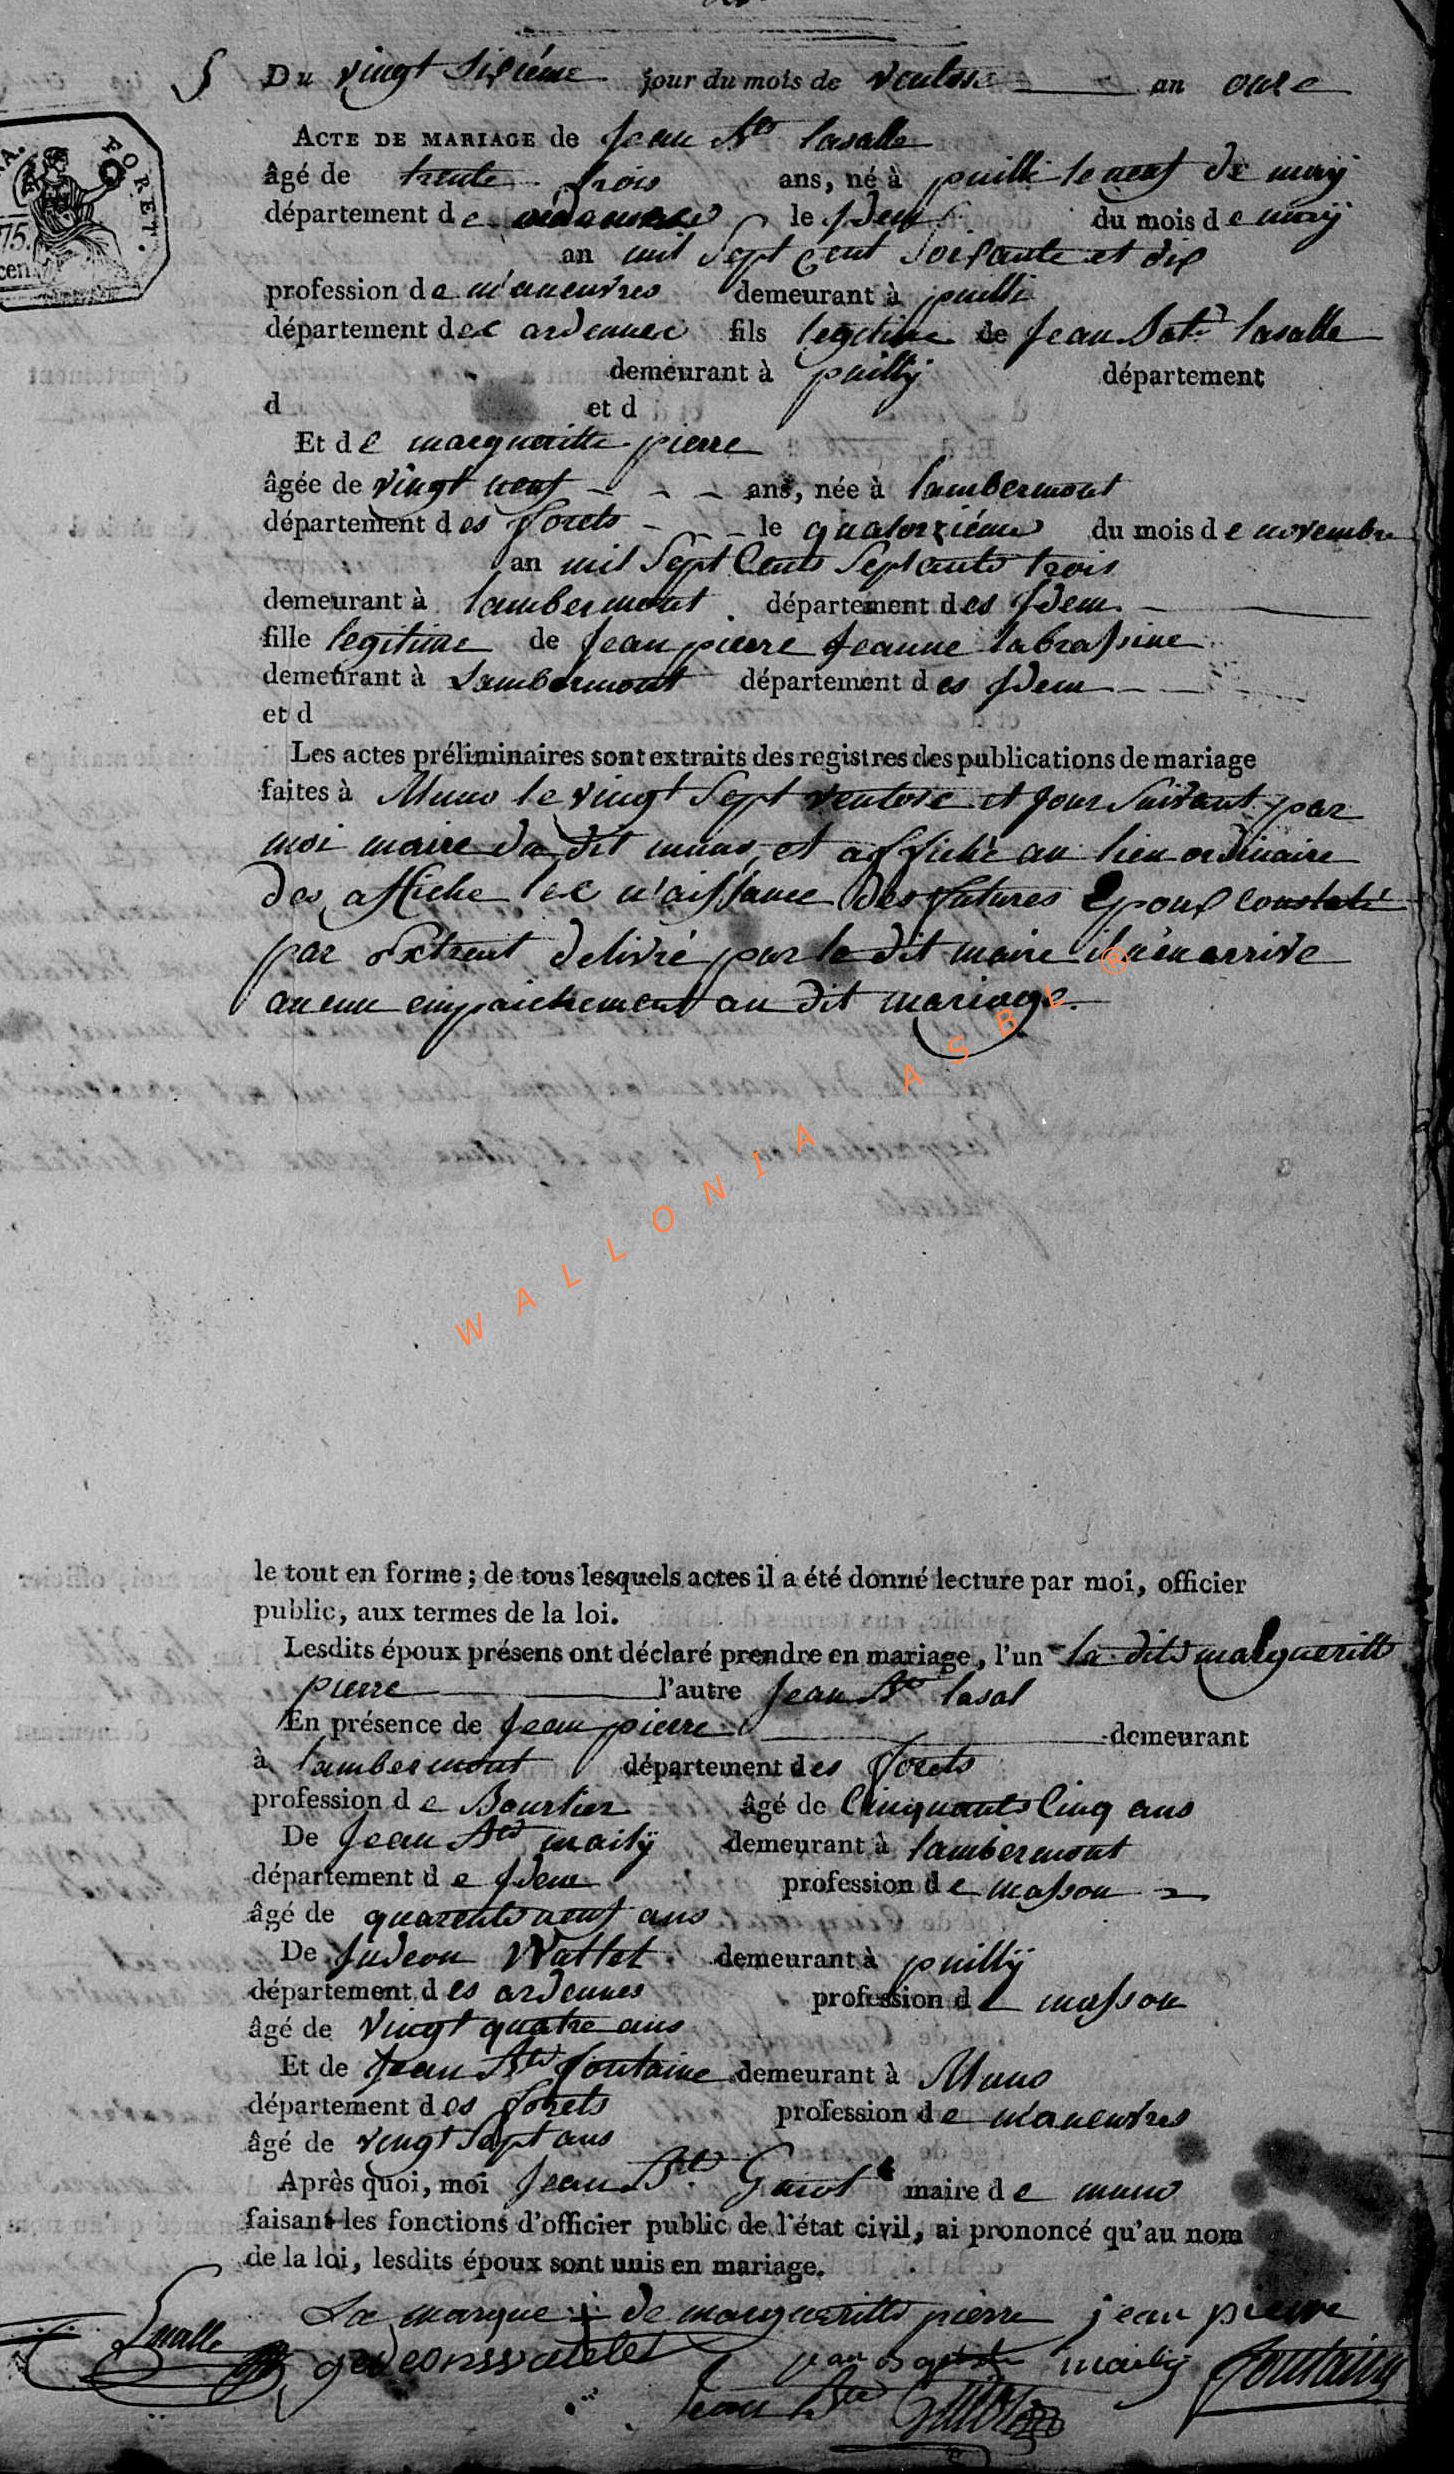 5 Du vingt sixiéme jour du mois de ventose an onze
ACTE DE MARIAGE de Jean Bte lasalle
âgé de trente trois ans, né à puilli le neuf de maÿ
département de le Idem du mois de maÿ
an mil Sept Cent Soixante et dix
profession de m'aneuvres demeurant à puilli
département des ardennes fils legitime de Jean Bat. lasalle
demeurant à puillÿ département
d et d
Et de margueritte pierre
âgée de vingt neuf - - - ans, née à lambermont
département des forets - - le quatorziéme du mois de novembre
an mil Sept Cents Septante trois
demeurant à lambermont département des Idem -
fille legitime de Jean pierre Jeanne labrassine
demeurant à Lambermont département des Idem - -
et d
Les actes préliminaires sont extraits des registres des publications de mariage
faites à Muno le vingt Sept ventose et jour Suivant par
moi maire du dit muno, et affiché au lieu ordinaire
des affiche les n'aissance des futures Epoux constaté
par Extrait delivré par le dit maire il n'en arrive
aucun empaichement au dit mariage.
FORET.
75.
cen
WALLONIA ASBL ®
le tout en forme ; de tous lesquels actes il a été donné lecture par moi, officier
public, aux termes de la loi.
Lesdits époux présens ont déclaré prendre en mariage, l'un la dite margueritte
pierre l'autre Jean Bte lasal
En présence de Jean pierre demeurant
à lambermont département des forets
profession de Bourlier âgé de Cinquante Cinq ans
De Jean Bte mailÿ demeurant à lambermont
département de Idem profession de masson
âgé de quarente neuf ans
De Judeon Wattet demeurant à puillÿ
département des ardennes profession de masson
âgé de vingt quatre ans
Et de Jean Bte fontaine demeurant à Muno
département des forets profession de m'aneuvres
âgé de vingt Sept ans
Après quoi, moi Jean Bte maire de muno
faisant les fonctions d'officier public de l'état civil, ai prononcé qu'au nom
de la loi, lesdits époux sont unis en mariage.
La marque + de margueritte pierre jean pierre
Lasalle jean bapiste mailÿ fontaine
Jean Bte